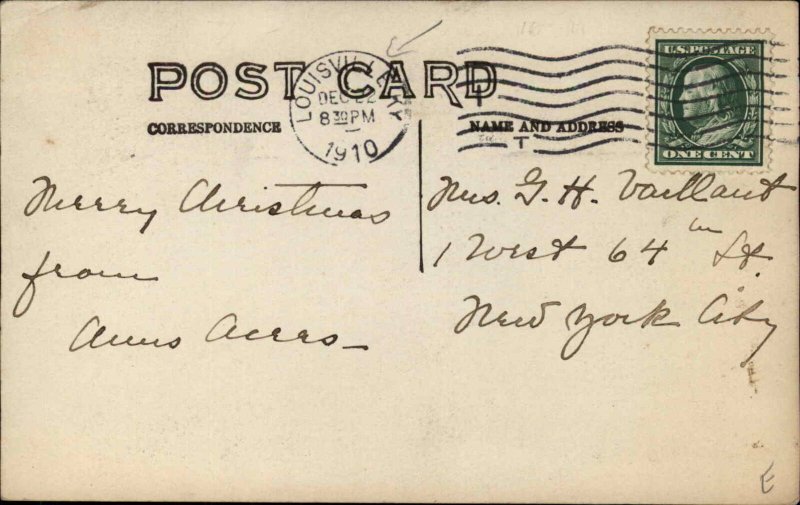 POST CARD
LOUISVILLE KY
DEC 22
8 30 PM
1910
U.S. POSTAGE
ONE CENT
CORRESPONDENCE
NAME AND ADDRESS
Merry Christmas
from
Acres
Mrs. G. H. Vaillant
1 West 64th St.
New York City
E